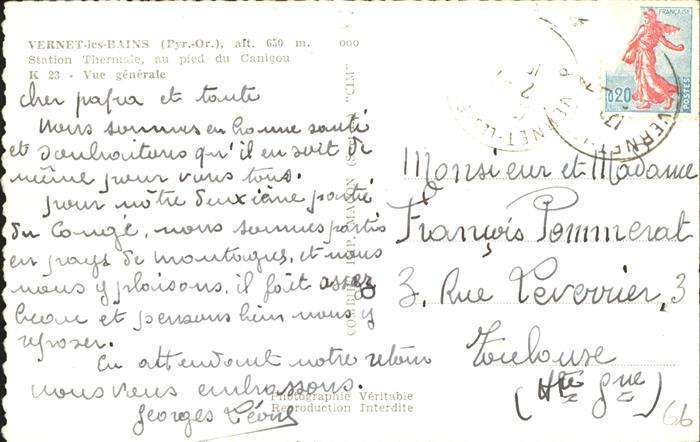 VERNET-les-BAINS (Pyr.-Or.), alt. 650 m. 000
Station Thermale, au pied du Canigou
K 23 - Vue générale
cher pafra et tante
Nous sommes en bonne santé
et souhaitons qu'il en soit de
même pour vous tous.
pour nôtre deuxième partie
du Congé, nous sommes partis
en pays de montagnes, et nous
nous y plaisons, il fait assez
beau et pensons bien nous y
reposer.
En attendant notre retour
nous vous embrassons.
Georges
Photographie Véritable
Reproduction Interdite
"CIM"
RÉPUBLIQUE FRANÇAISE
0,20
POSTES
VERNET
Monsieur et Madame
François Pommerat
3, Rue Leverrier, 3
Toulouse
(Hte Gne)
66